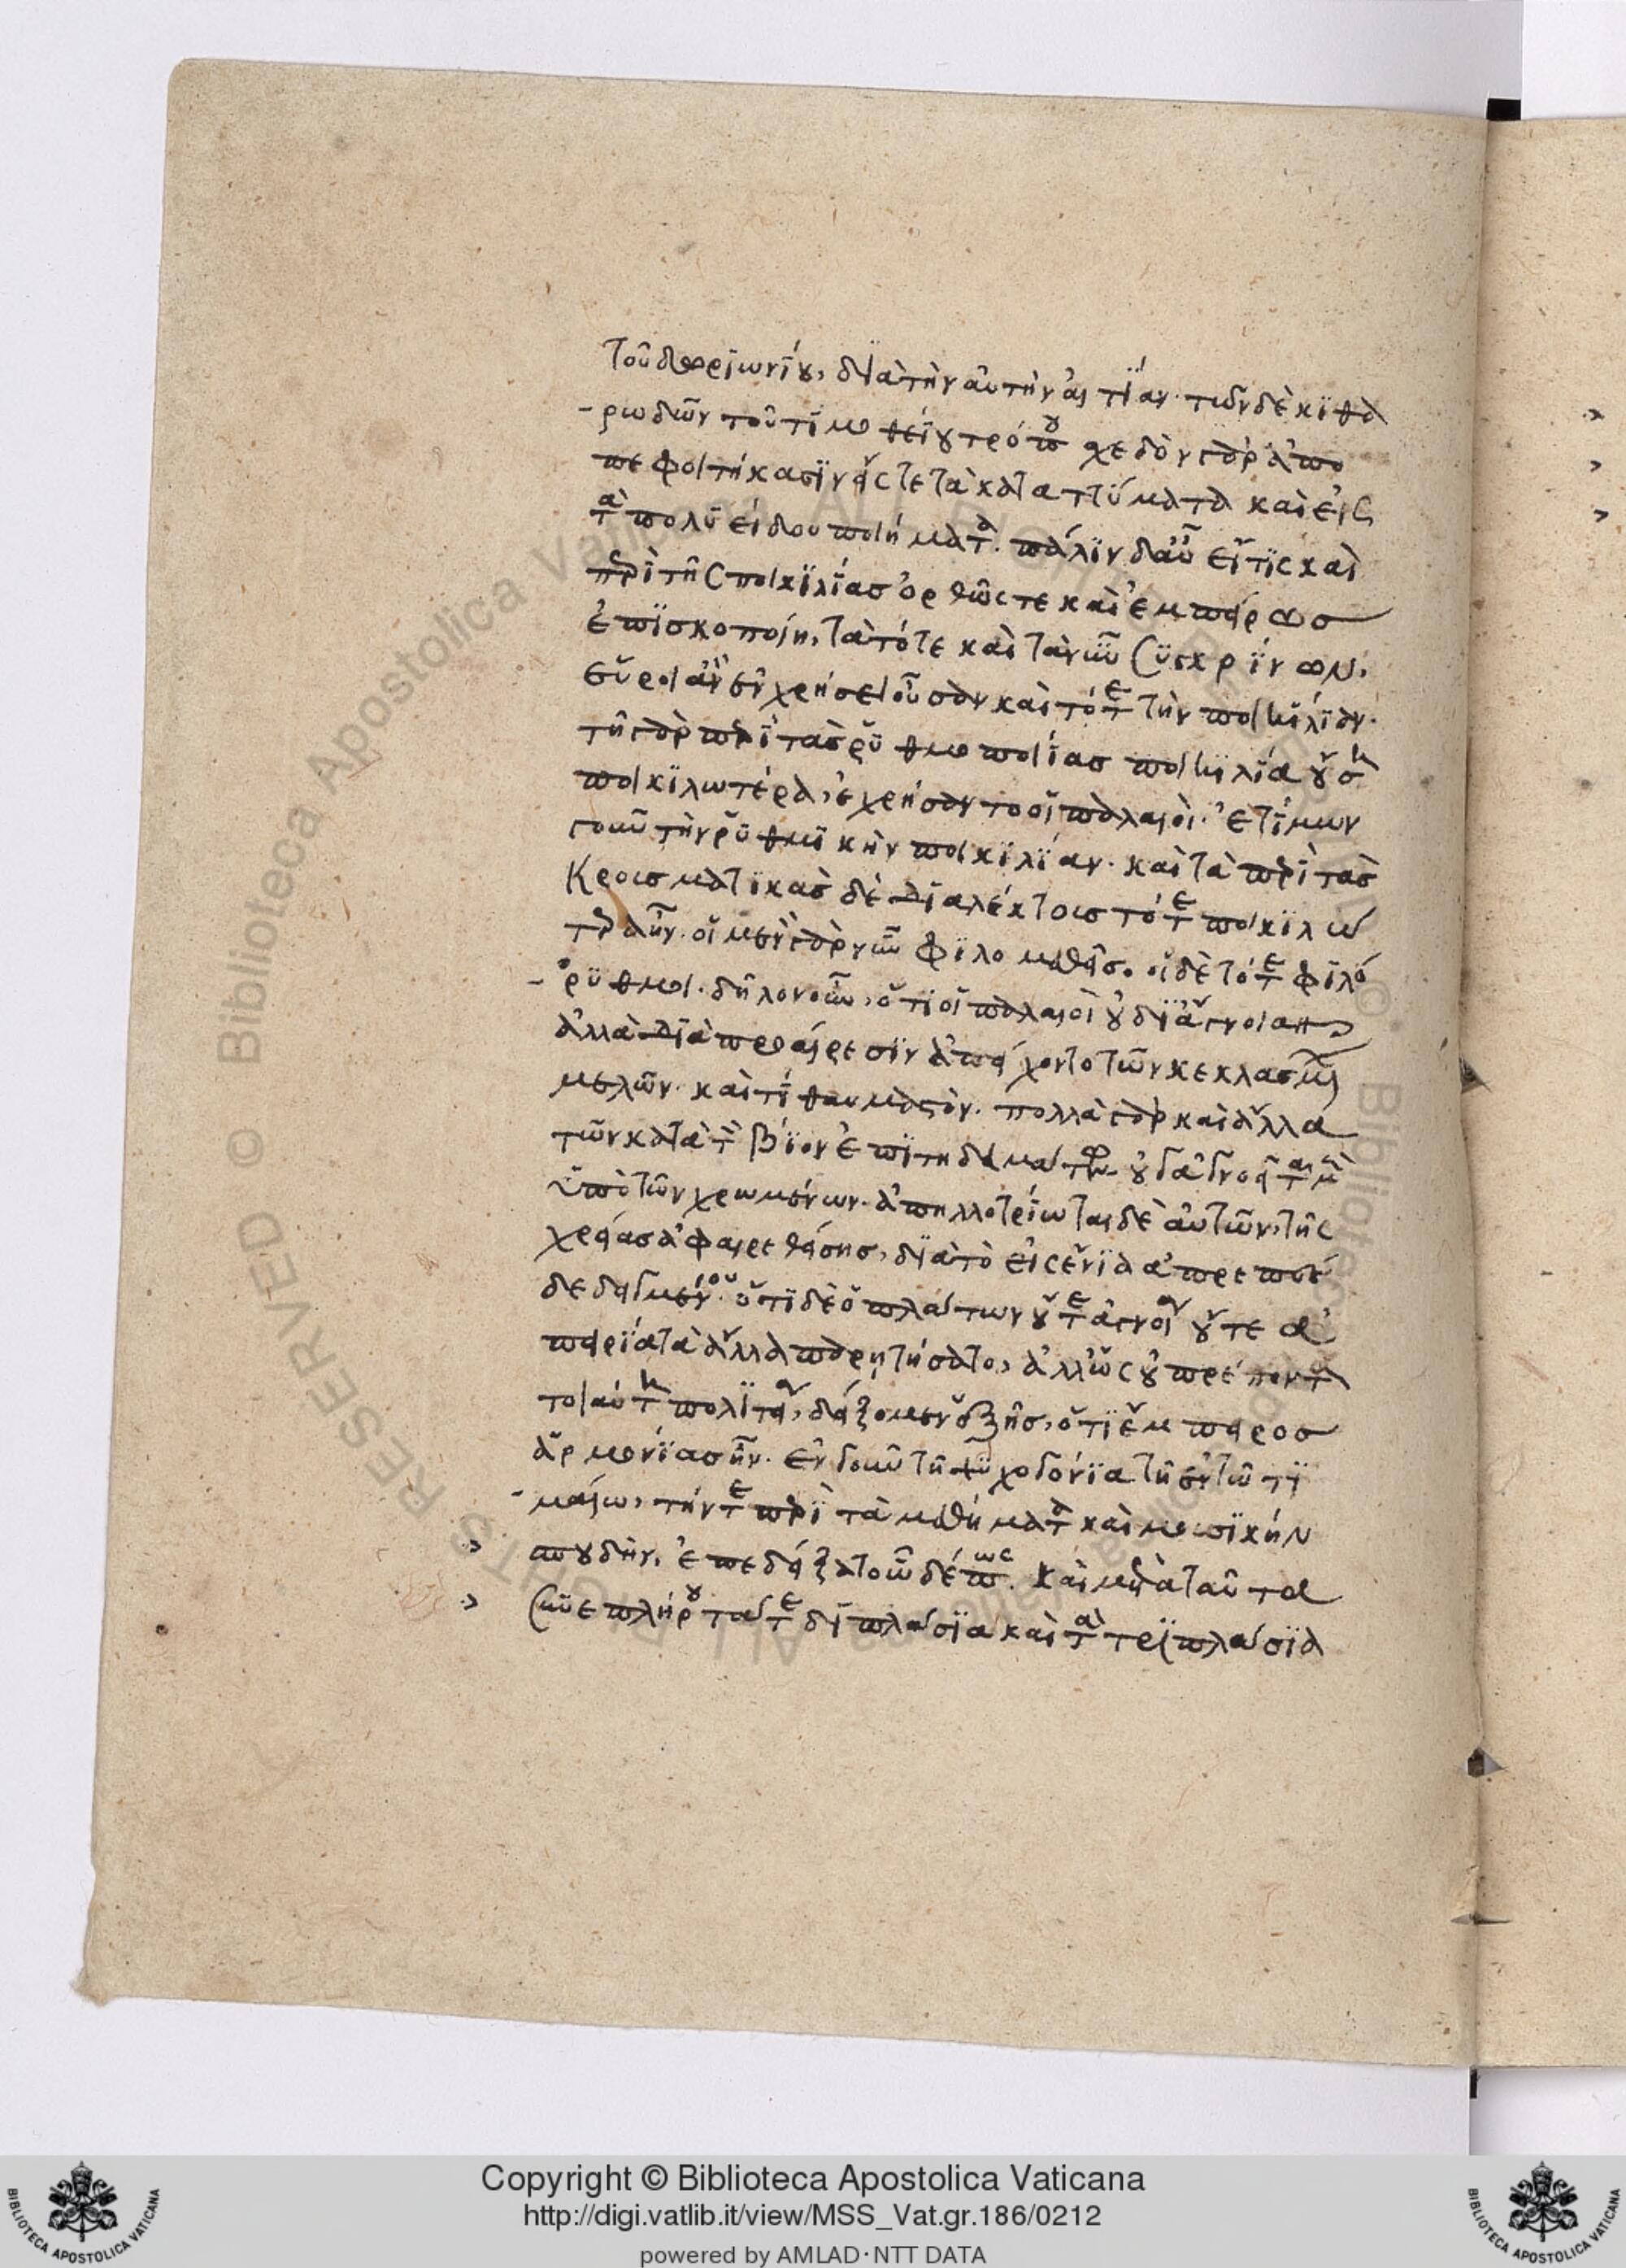 τοῦ δωρίωνίου, διὰ τὴν αὐτὴν αἰτίαν· τῶν δὲ κιθα
ρωδῶν τοῦ τιμοθείου τρόπου σχεδὸν γὰρ ἀπο
πεφοιτήκασιν εἴς τε τὰ καττύματα καὶ εἰς
τὰ πολυείδου ποιήματα. πάλιν δ' αὖ εἴ τις καὶ
περὶ τῆς ποικιλίας ὀρθῶς τε καὶ ἐμπείρως
ἐπισκοποίη, τὰ τότε καὶ τὰ νῦν συγκρίνων,
εὕροι ἂν ἐν χρήσει οὖσαν καὶ τότε τὴν ποικιλίαν·
τῆ γὰρ περὶ τὰς ῥυθμοποιίας ποικιλία οὔση
ποικιλωτέρα, ἐχρήσαντο οἱ παλαιοί· ἐτίμων
γοῦν τὴν ῥυθμικὴν ποικιλίαν· καὶ τὰ περὶ τὰς
κρουσματικὰς δὲ διαλέκτους τότε ποικιλώ
τερα ἦν. οἱ μὲν γὰρ νῦν φιλομαθεῖς. οἱ δὲ τότε φιλό
ρυθμοι. δῆλον οὖν, ὅτι οἱ παλαιοὶ οὐ δι' ἄγνοιαν
ἀλλὰ διὰ προαίρεσιν ἀπείχοντο τῶν κεκλασμένων
μελῶν. καὶ τί θαυμαστόν. πολλὰ γὰρ καὶ ἄλλα
τῶν κατὰ τὸν βίον ἐπιτηδευμάτων οὐκ ἀγνοεῖται μὲν
ὑπὸ τῶν χρωμένων. ἀπηλλοτρίωται δὲ αὐτῶν, τῆς
χρείας ἀφαιρεθείσης, διὰ τὸ εἰς ἔνια ἀπρεπὲς
δεδειγμένου. ὅτι δὲ ὁ πλάτων οὔτε ἀγνοία οὔτε ἀ
πειρία τὰ ἄλλα παρητήσατο, ἀλλ' ὡς οὐ πρέποντα
τοιαύτη πολιτεία, δείξομεν ἑξῆς, ὅτι ἔμπειρος
ἁρμονίας ἦν. ἐν γοῦν τῆ ψυχογονία τῆ ἐν τῶ τι
μαίω, τήν τε περὶ τὰ μαθήματα καὶ μουσικὴν
σπουδὴν, ἐπεδείξατο ὧδέ πως. καὶ μετὰ ταῦτα
συνεπληροῦτο τά τε διπλάσια καὶ τὰ τριπλάσια
Copyright © Biblioteca Apostolica Vaticana
http://digi.vatlib.it/view/MSS_Vat.gr.186/0212
powered by AMLAD·NTT DATA